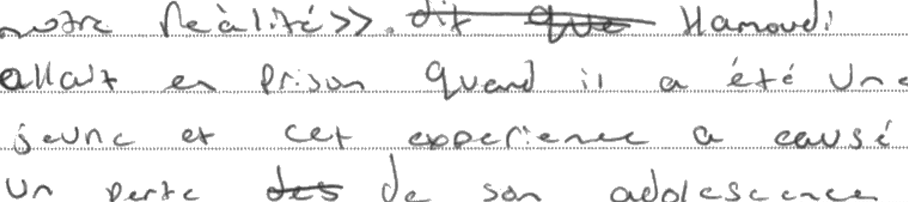 notre Réàlité>>. ~~dit que~~ Hamoudi
allait en prison quand il a été une
jeune et cet experience a causé
un perte ~~des~~ de son adolescence